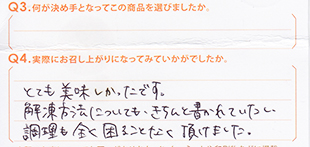 Q3.何が決め手となってこの商品を選びましたか。
Q4.実際にお召し上がりになってみていかがでしたか。
とても美味しかったです。
解凍方法についても、きちんと書かれていたし、
調理も全く困ることなく頂けました。